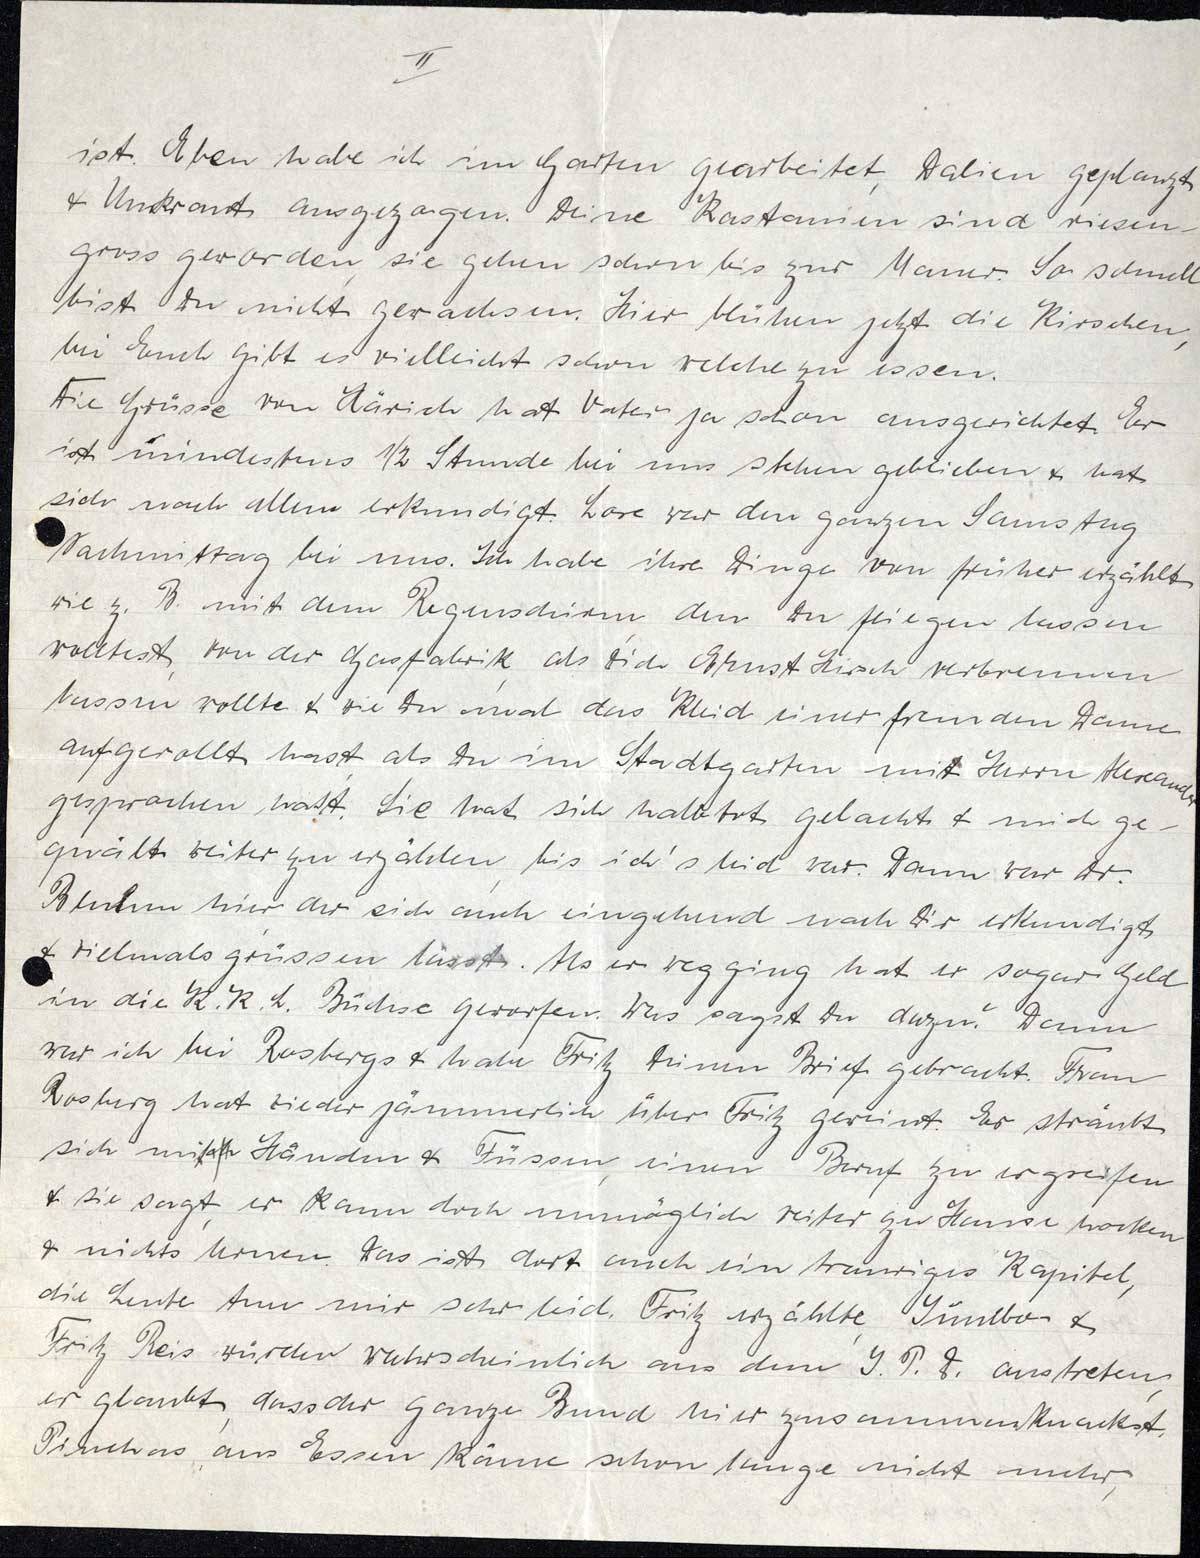 II
ist. Eben habe ich im Garten gearbeitet, Dalien geplanzt
& Unkraut ausgezogen. Deine Kastanien sind riesen-
gross geworden, sie gehen schon bis zur Mauer. So schnell
bist Du nicht gewachsen. Hier blühen jetzt die Kirschen,
bei Euch gibt es vielleicht schon welche zu essen.
Die Grüsse von Härich hat Vater ja schon ausgerichtet. Er
ist mindestens 1/2 Stunde bei uns stehen geblieben & hat
sich nach allem erkundigt. Lore war den ganzen Samstag
Nachmittag bei uns. Ich habe ihr Dinge von früher erzählt
wie z. B. mit dem Regenschirm, den Du fliegen lassen
wolltest, von der Gasfabrik, als Dich Ernst Hirsch verbrennen
lassen wollte & wie Du mal das Kleid einer fremden Dame
aufgerollt hast, als Du im Stadtgarten mit Herrn Alexander
gesprochen hast. Sie hat sich halbtot gelacht & mich ge-
quält weiter zu erzählen, bis ich's leid war. Dann war Dr.
hier der sich auch eingehend nach Dir erkundigt
& vielmals grüssen lässt. Als er wegging hat er sogar Geld
in die K.K.L. Büchse geworfen. Was sagst Du dazu? Dann
war ich bei Rosbergs & habe Fritz Deinen Brief gebracht. Frau
Rosberg hat wieder jämmerlich über Fritz geweint. Er sträubt
sich mit Händen & Füssen, einen Beruf zu ergreifen
& sie sagt, er kann doch unmöglich weiter zu Hause hocken
& nichts lernen. Das ist dort auch ein trauriges Kapitel,
die Leute tun mir sehr leid. Fritz erzählte, &
Fritz Reis würden wahrscheinlich aus dem J.P.D. austreten,
er glaubt, dass der ganze Bund hier zusammenknackst.
Pinchas aus Essen käme schon lange nicht mehr,